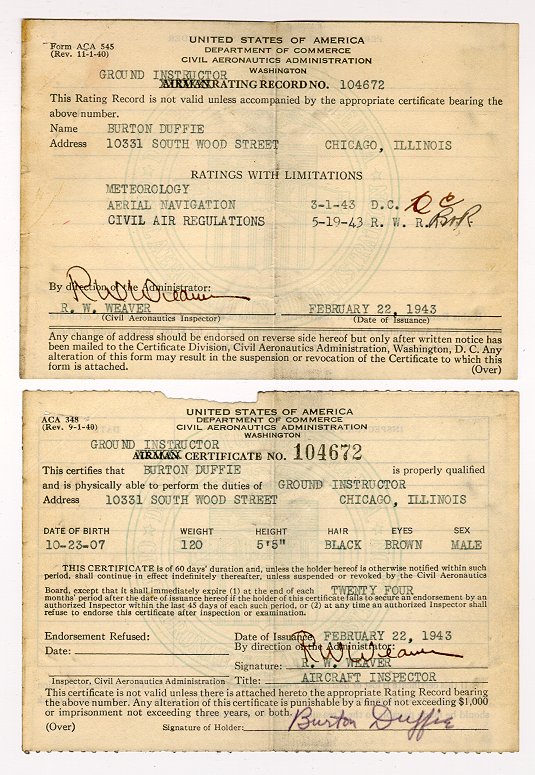 Form ACA 545
(Rev. 11-1-40)
UNITED STATES OF AMERICA
DEPARTMENT OF COMMERCE
CIVIL AERONAUTICS ADMINISTRATION
WASHINGTON
GROUND INSTRUCTOR
AIRMAN RATING RECORD NO. 104672
This Rating Record is not valid unless accompanied by the appropriate certificate bearing the
above number.
Name BURTON DUFFIE
Address 10331 SOUTH WOOD STREET CHICAGO, ILLINOIS
RATINGS WITH LIMITATIONS
METEOROLOGY
AERIAL NAVIGATION 3-1-43 D.C. DC
CIVIL AIR REGULATIONS 5-19-43 R. W. R. RWR
By direction of the Administrator:
R W Weaver
R. W. WEAVER FEBRUARY 22, 1943
(Civil Aeronautics Inspector) (Date of Issuance)
Any change of address should be endorsed on reverse side hereof but only after written notice has
been mailed to the Certificate Division, Civil Aeronautics Administration, Washington, D. C. Any
alteration of this form may result in the suspension or revocation of the Certificate to which this
form is attached. (Over)
ACA 348
(Rev. 9-1-40)
UNITED STATES OF AMERICA
DEPARTMENT OF COMMERCE
CIVIL AERONAUTICS ADMINISTRATION
WASHINGTON
GROUND INSTRUCTOR
AIRMAN CERTIFICATE NO. 104672
This certifies that BURTON DUFFIE is properly qualified
and is physically able to perform the duties of GROUND INSTRUCTOR
Address 10331 SOUTH WOOD STREET CHICAGO, ILLINOIS
DATE OF BIRTH WEIGHT HEIGHT HAIR EYES SEX
10-23-07 120 5'5" BLACK BROWN MALE
THIS CERTIFICATE is of 60 days' duration and, unless the holder hereof is otherwise notified within such
period, shall continue in effect indefinitely thereafter, unless suspended or revoked by the Civil Aeronautics
Board, except that it shall immediately expire (1) at the end of each TWENTY FOUR
months' period after the date of issuance hereof if the holder of this certificate fails to secure an endorsement by an
authorized Inspector within the last 45 days of each such period, or (2) at any time an authorized Inspector shall
refuse to endorse this certificate after inspection or examination.
Endorsement Refused: Date of Issuance FEBRUARY 22, 1943
Date: By direction of the Administrator:
R W Weaver
Signature: R. W. WEAVER
Inspector, Civil Aeronautics Administration Title: AIRCRAFT INSPECTOR
This certificate is not valid unless there is attached hereto the appropriate Rating Record bearing
the above number. Any alteration of this certificate is punishable by a fine of not exceeding $1,000
or imprisonment not exceeding three years, or both.
(Over) Signature of Holder: Burton Duffie